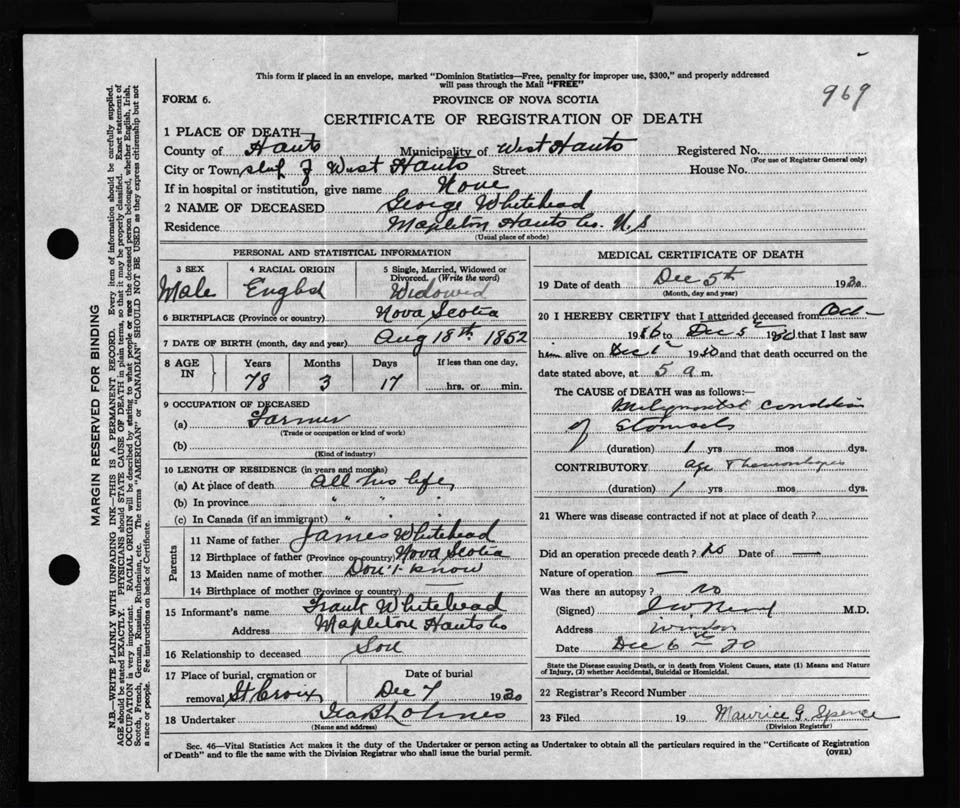 This form if placed in an envelope, marked "Dominion Statistics—Free, penalty for improper use, $300," and properly addressed
will pass through the Mail "FREE"
969
FORM 6.
PROVINCE OF NOVA SCOTIA
CERTIFICATE OF REGISTRATION OF DEATH
1 PLACE OF DEATH—
County of Hants Municipality of West Hants Registered No.
(For use of Registrar General only)
City or Town of West Hants Street House No.
If in hospital or institution, give name None
2 NAME OF DECEASED George Whitehead
Residence Mapleton Hants Co. N.S
(Usual place of abode)
PERSONAL AND STATISTICAL INFORMATION
3 SEX Male
4 RACIAL ORIGIN English
5 Single, Married, Widowed or Divorced. (Write the word) Widowed
6 BIRTHPLACE (Province or country) Nova Scotia
7 DATE OF BIRTH (month, day and year) Aug 18th 1852
8 AGE IN
Years Months Days If less than one day,
78 3 17 hrs. or min.
9 OCCUPATION OF DECEASED
(a) Farmer
(Trade or occupation or kind of work)
(b)
(Kind of industry)
10 LENGTH OF RESIDENCE (in years and months)
(a) At place of death All his life
(b) In province " " "
(c) In Canada (if an immigrant) " " "
Parents
11 Name of father James Whitehead
12 Birthplace of father (Province or country) Nova Scotia
13 Maiden name of mother Don't know
14 Birthplace of mother (Province or country) —
15 Informant's name Frank Whitehead
Address Mapleton Hants Co
16 Relationship to deceased Son
17 Place of burial, cremation or Date of burial
removal St Croix Dec 7 1930
18 Undertaker
(Name and address)
MEDICAL CERTIFICATE OF DEATH
19 Date of death Dec 5th 1930
(Month, day and year)
20 I HEREBY CERTIFY that I attended deceased from Oct
19 to Dec 5 1930 that I last saw
him alive on Dec 1930 and that death occurred on
date stated above, at 5 a m.
The CAUSE OF DEATH was as follows:
Malignant condition
of Stomach
(duration) 1 yrs mos dys.
CONTRIBUTORY Age
(duration) 1 yrs mos dys.
21 Where was disease contracted if not at place of death?
Did an operation precede death? No Date of —
Nature of operation —
Was there an autopsy? no
(Signed) M.D.
Address Windsor
Date Dec 6th 30
State the Disease causing Death, or in death from Violent Causes, state (1) Means and Nature
of Injury, (2) whether Accidental, Suicidal or Homicidal.
22 Registrar's Record Number
23 Filed 19 Maurice G. Spence
(Division Registrar)
Sec. 46—Vital Statistics Act makes it the duty of the Undertaker or person acting as Undertaker to obtain all the particulars required in the "Certificate of Registration
of Death" and to file the same with the Division Registrar who shall issue the burial permit.
(OVER)
MARGIN RESERVED FOR BINDING
N.B.—WRITE PLAINLY WITH UNFADING INK—THIS IS A PERMANENT RECORD. Every item of information should be carefully supplied.
AGE should be stated EXACTLY. PHYSICIANS should STATE CAUSE OF DEATH in plain terms, so that it may be properly classified. Exact statement of
OCCUPATION is very important. RACIAL ORIGIN will be described by stating to what people or race the deceased person belonged, whether English, Irish,
Scotch, French, German, Russian, Ruthenian, etc. The terms "AMERICAN" or "CANADIAN" SHOULD NOT BE USED as they express citizenship but not
a race or people. See instructions on back of Certificate.